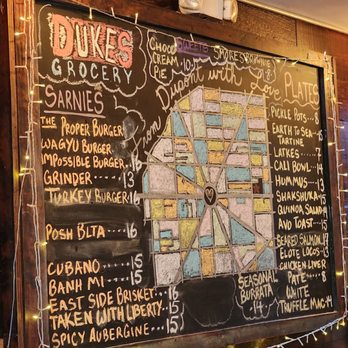 DUKES
GROCERY
CHOCO
CREAM
PIE
SARNIES
THE PROPER BURGER
WAGYU BURGER
IMPOSSIBLE BURGER 16
GRINDER 13
TURKEY BURGER 16
POSH BLTA 16
CUBANO 15
BANH MI 15
EAST SIDE BRISKET 16
TAKEN WITH LIBERTY 15
SPICY AUBERGINE 15
From Dupont with Love
PLATES
PICKLE POTS 5
EARTH TO SEA
TARTINE
LATKES 7
CALI BOWL 14
HUMMUS 13
SHAKSHUKA
QUINOA SALAD
AND TOAST
SEARED SALMON 17
ELOTE LOCOS 13
CHICKEN LIVER
PATE 8
WHITE
TRUFFLE MAC 14
SEASONAL
BURRATA
14